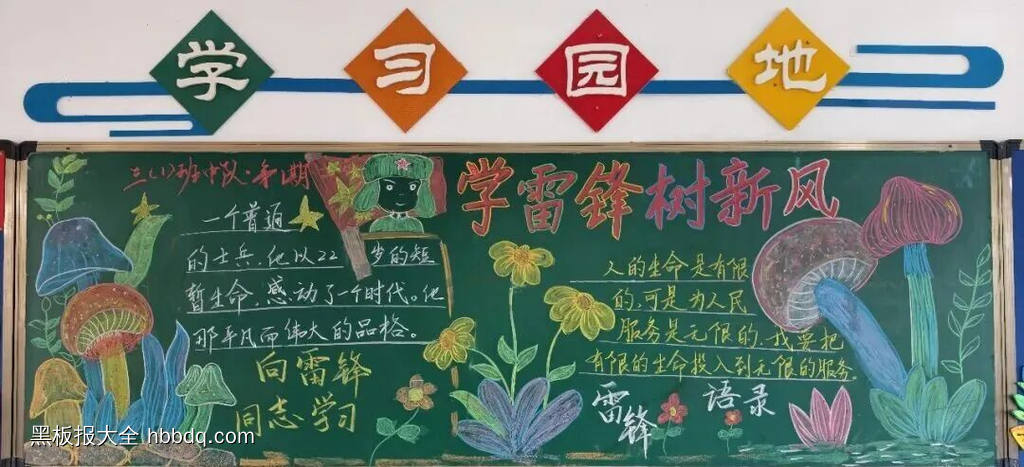 学习园地
三(1)班中队·第1期
学雷锋树新风
一个普通
的士兵，他以22岁的短
暂生命，感动了一个时代。他
那平凡而伟大的品格。
向雷锋
同志学习
人的生命是有限
的，可是为人民
服务是无限的，我要把
有限的生命投入到无限的服务。
雷锋 语录
黑板报大全 hbbdq.com